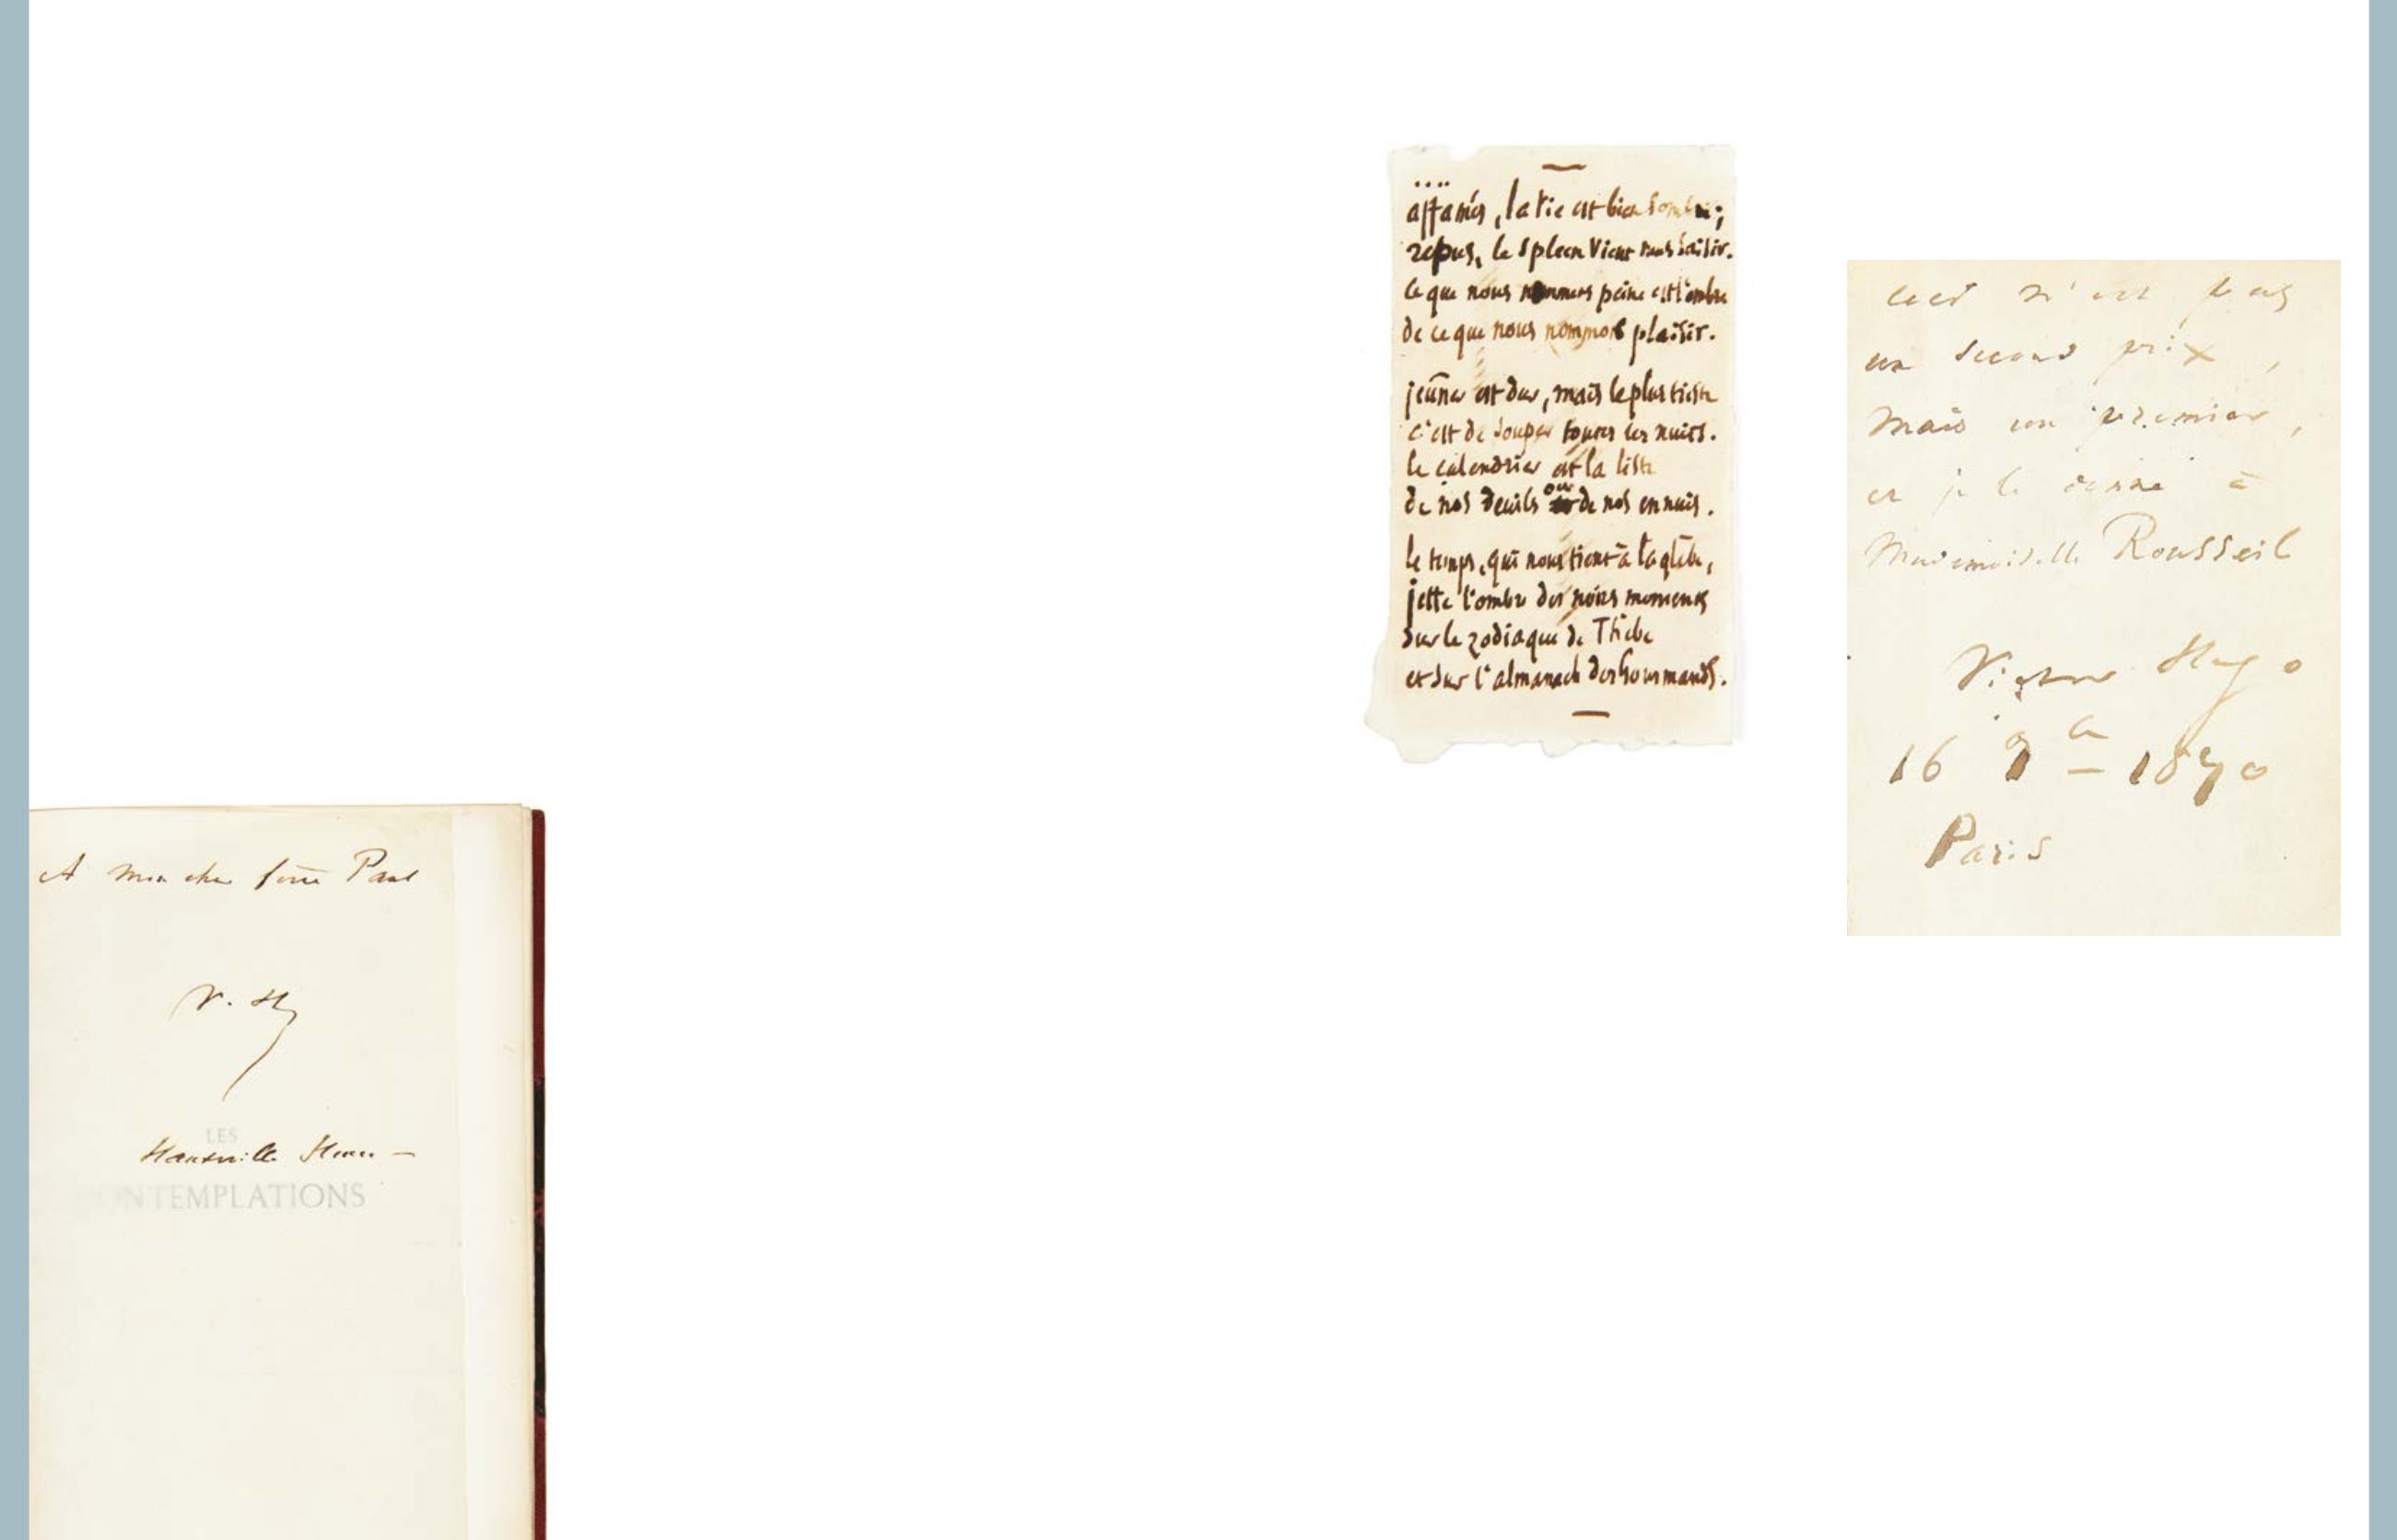 A mon cher frère Paul
V. H
LES
Hauteville House –
CONTEMPLATIONS
....
affamés, la vie est bien sombre ;
repus, le spleen vient nous saisir.
ce que nous nommons peine est l'ombre
de ce que nous nommons plaisir.
jeûner est dur, mais le plus triste
c'est de souper toutes les nuits.
le calendrier est la liste
de nos deuils ou de nos ennuis.
le temps, qui nous tient à la glèbe,
jette l'ombre des noirs moments
sur le zodiaque de Thèbe
et sur l'almanach des Gourmands.
ceci n'est pas
un second prix,
mais un premier,
et je le donne à
Mademoiselle Rousseil
Victor Hugo
16 9bre 1870
Paris